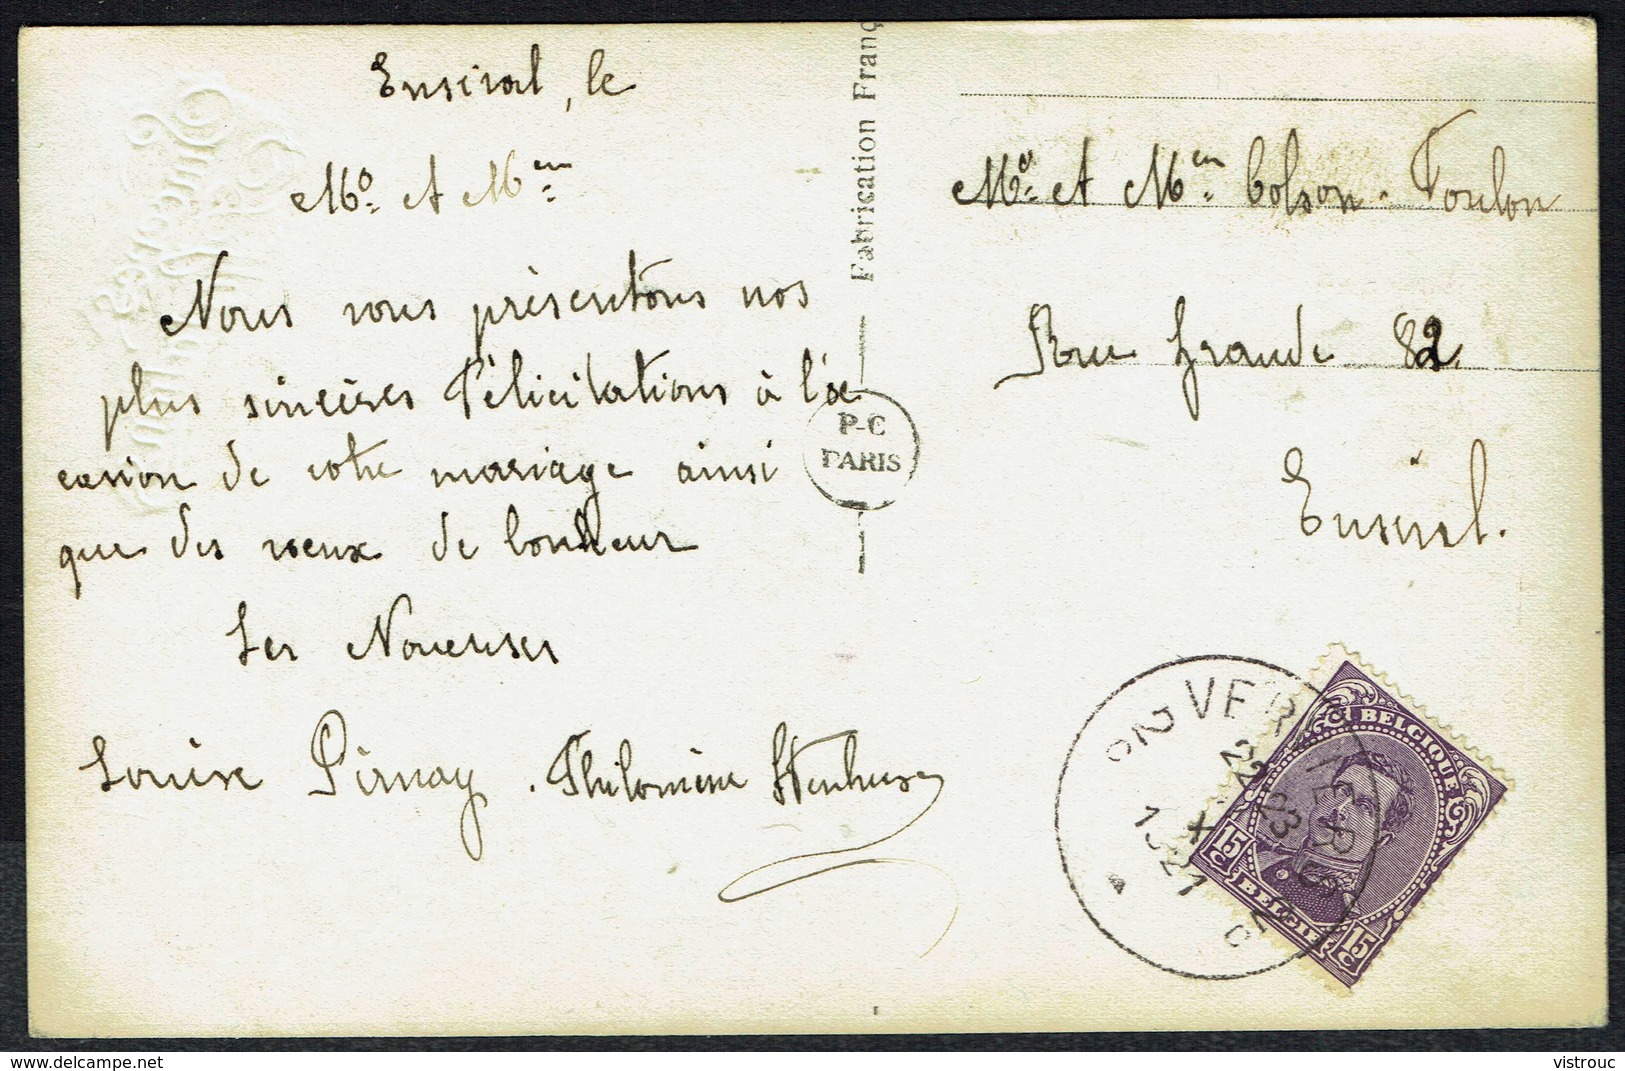 Ensival, le
Mr. et Mme
Nous vous présentons nos
plus sincères félicitations à l'oc
casion de votre mariage ainsi
que des vœux de bonheur
Les
Louise Pirnay. Philomène
Fabrication Franç
P-C
PARIS
Mr. et Mme Colson-Foulon
Rue Grande 82
Ensival.
VERVIERS
22
X
1921
BELGIQUE
15c
BELGIE
15c
vistrouc